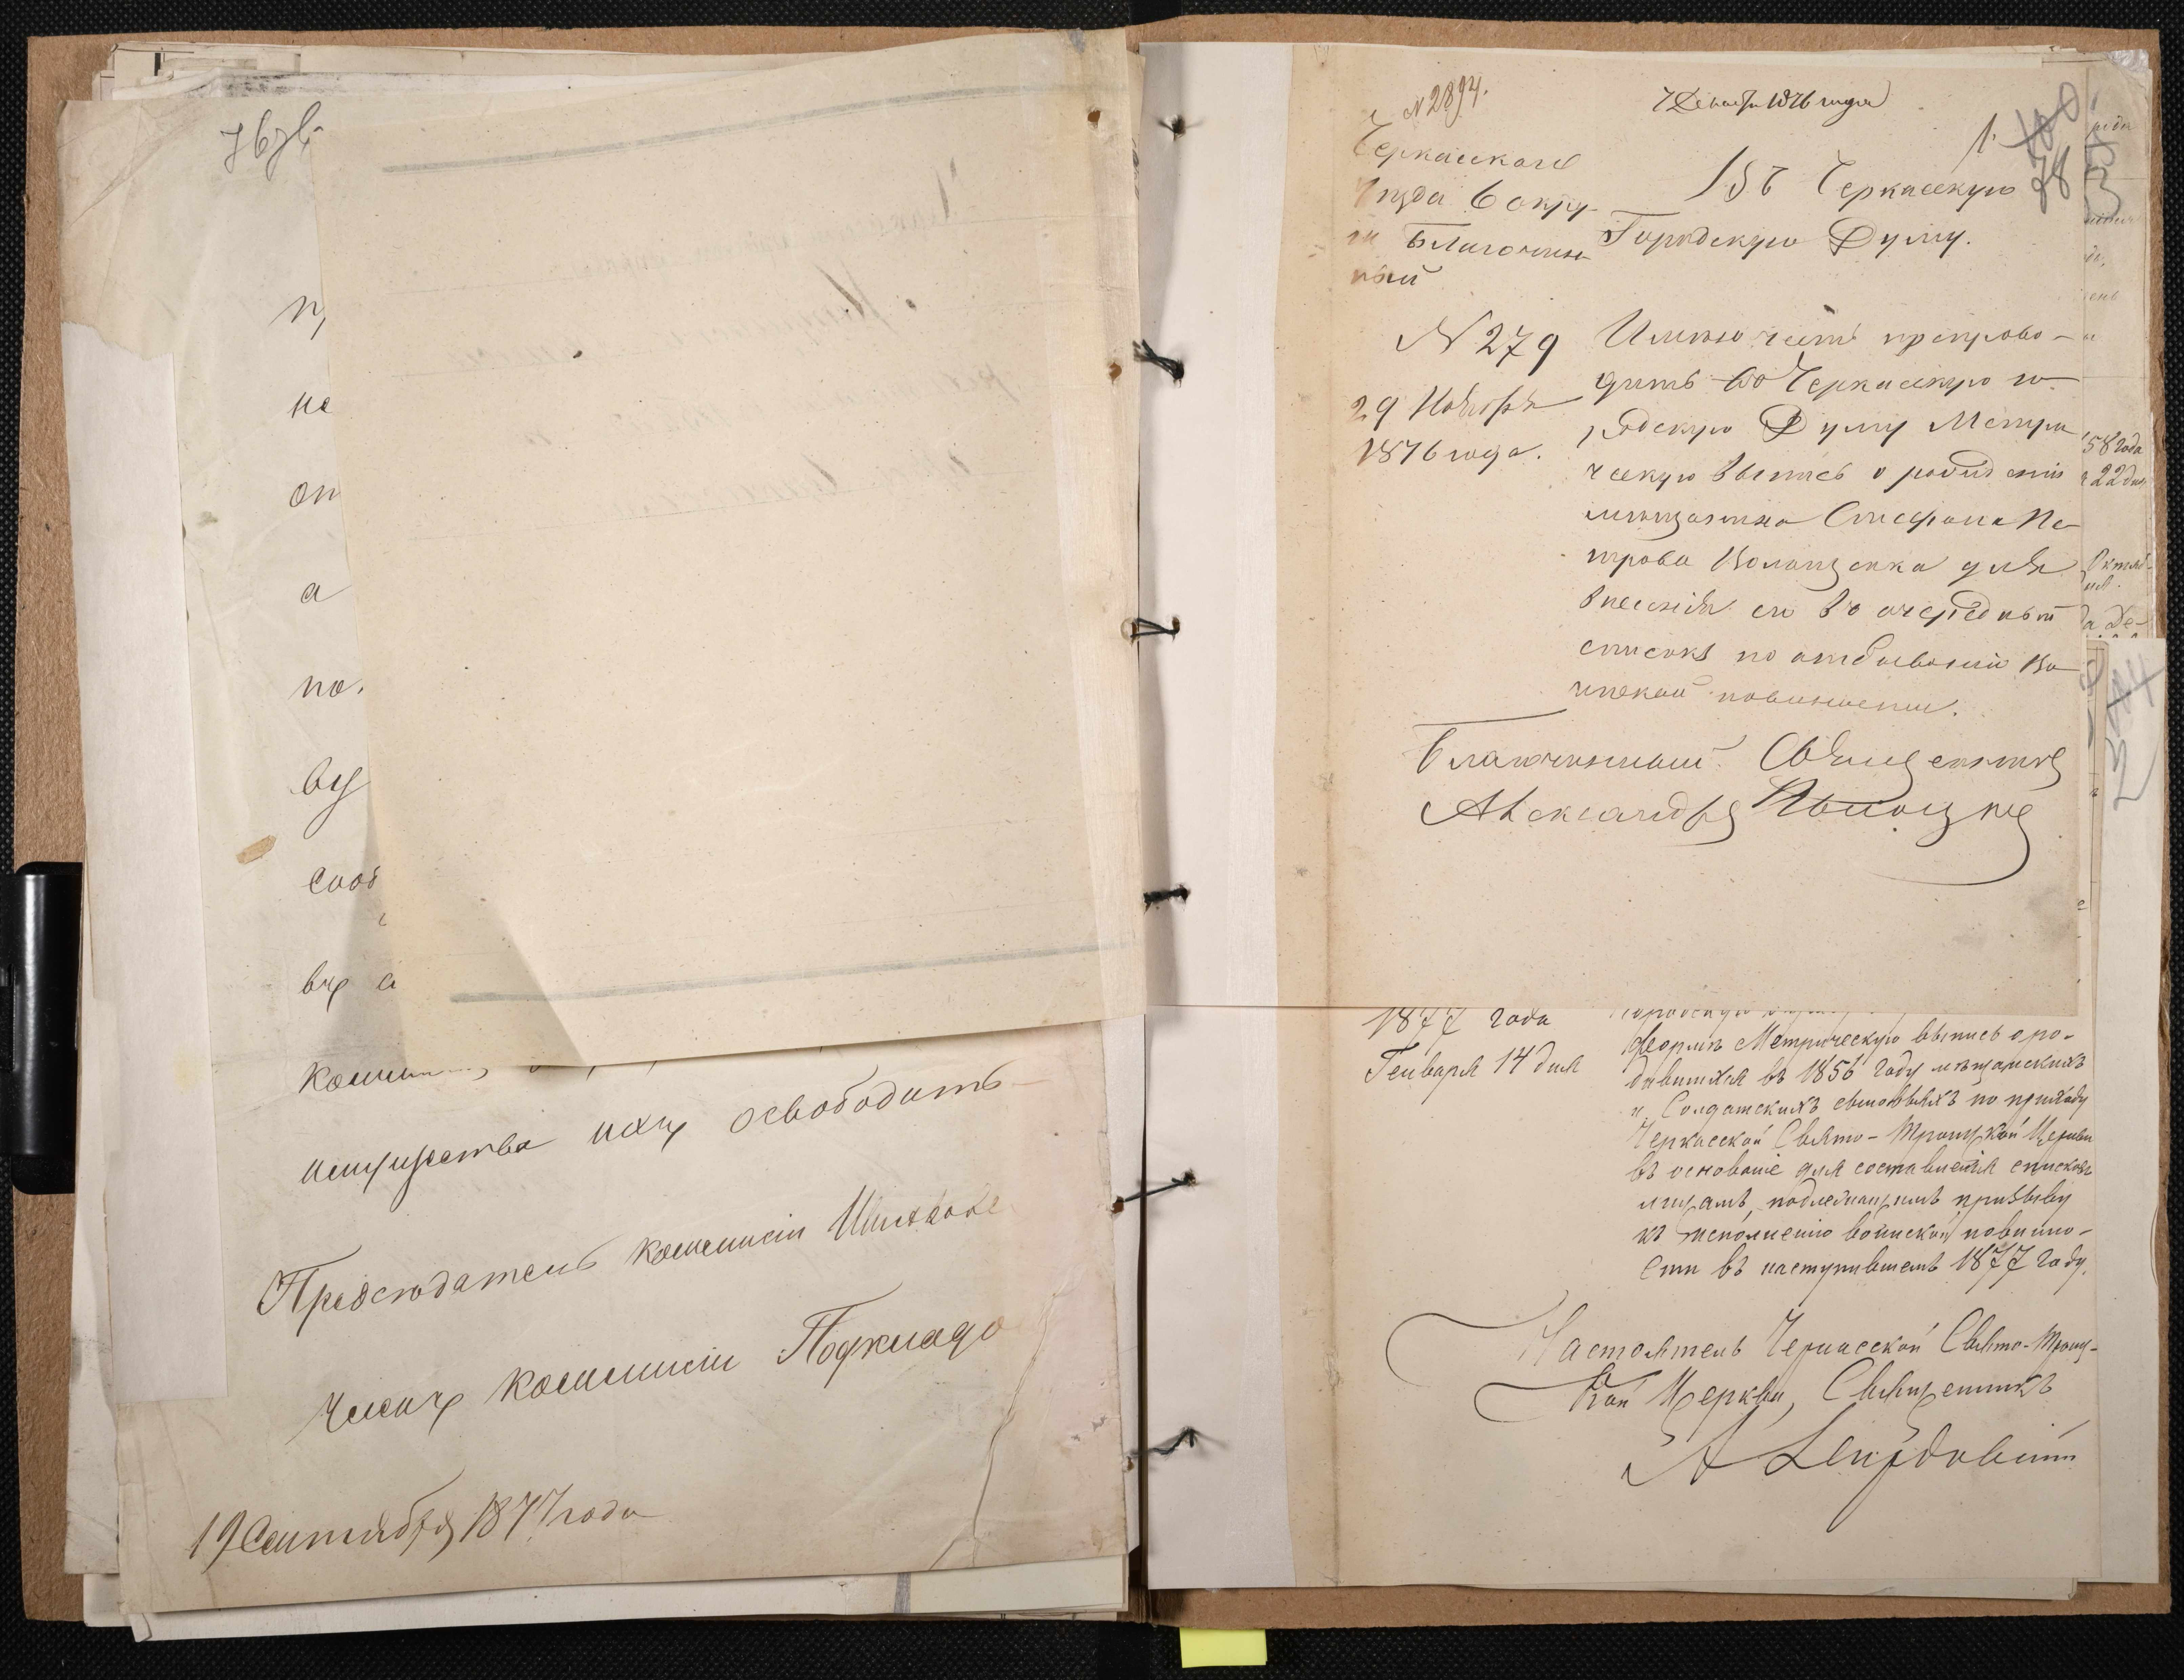 на
оп
а
по
ву
сооб
имущества ихъ освободить
Председатель коммисіи
Членъ коммисіи
19 Сентября 1877 года
N 2894.
7 Декабр 1876 года
1.
78
Черкасскаго
Уѣзда 6 окру-
га Благочин-
ный
Въ Черкасскую
Городскую Думу.
N 279
29 Ноября
1876 года.
Имѣю честь препрово-
дить во Черкасскую го-
родскую Думу Метри
ческую выпись о рожденіи
мѣщанина Стефана Пе-
трова для
внесенія его въ очередный
списокъ по отбыванію во
инской повинности.
Благочинный Священникъ
Александръ
58 года
22 дня
Октяб-
1877 года
Генваря 14 дня
форме Метрическую выпись о ро-
дившихся въ 1856 году мѣщанскихъ
и Солдатскихъ сыновьяхъ по приходу
Черкасской Свято-Троицкой Церкви
въ основаніе для составленія списковъ
лицамъ, подлежащимъ призыву
къ исполненію воинской повинно-
сти въ наступившемъ 1877 году.
Настоятель Черкасской Свято-Троиц-
кой Церкви, Священникъ
А